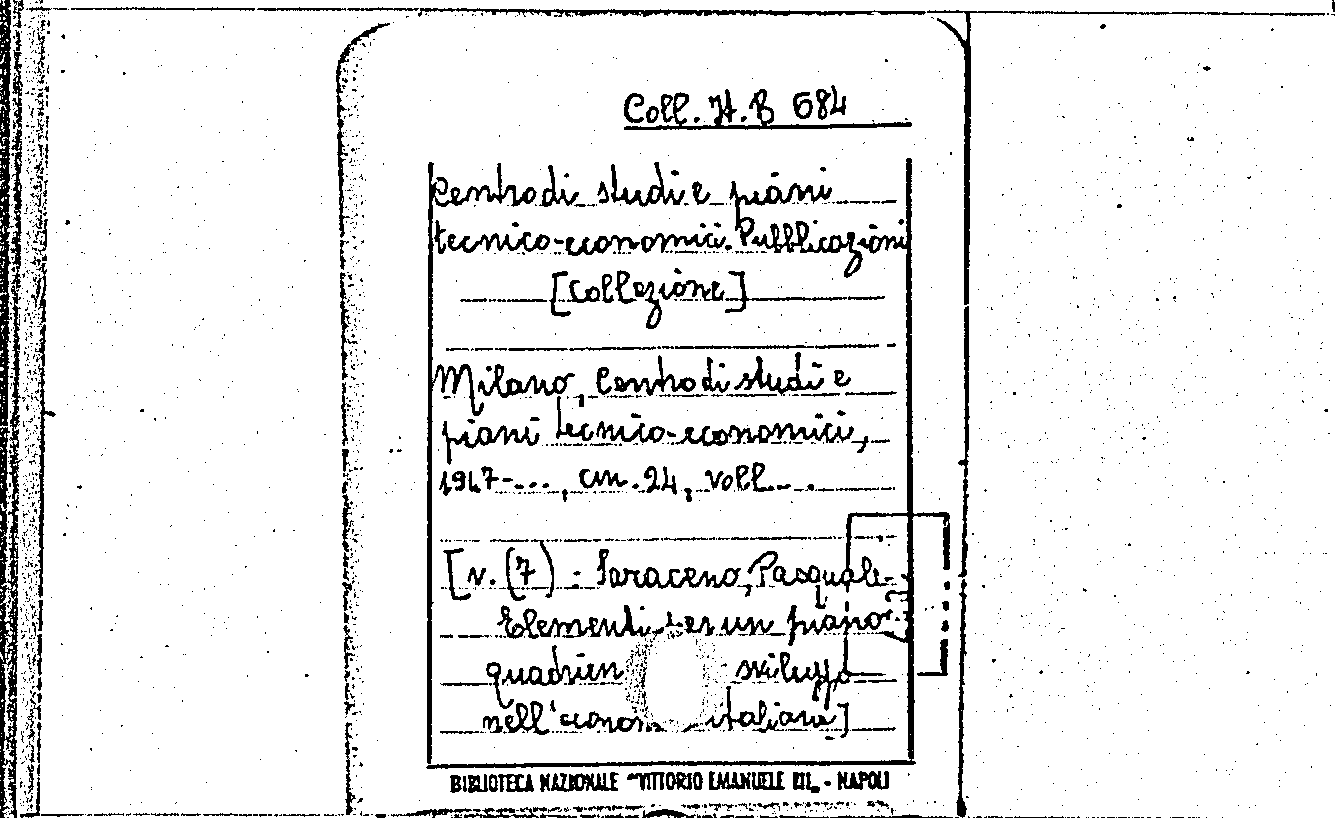 Coll. H.B 684
Centro di studi e piani
tecnico-economici. Pubblicazioni
[Collezione]
Milano, Centro di studi e
piani tecnico-economici,
1947-..., cm. 24, voll. . .
[v. (7) : Saraceno, Pasquale-
Elementi per un piano
quadrien sviluppo
nell'econom italiana]
BIBLIOTECA NAZIONALE "VITTORIO EMANUELE III" - NAPOLI